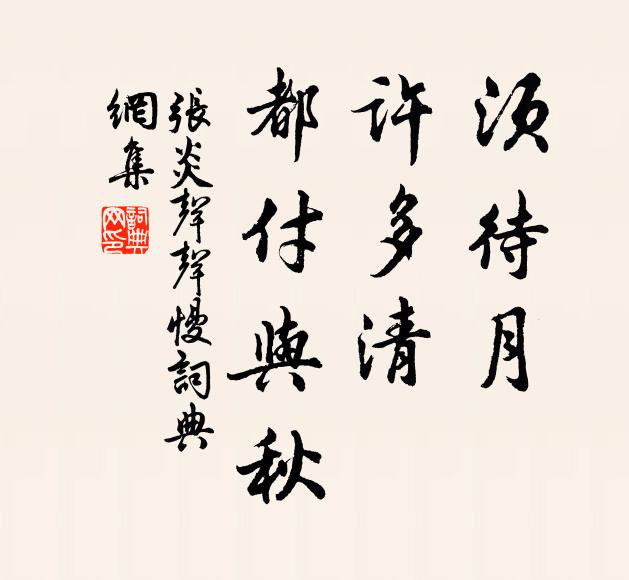 須待月
許多清
都付與秋
張炎聲聲慢詞典
網集
詞典
网印